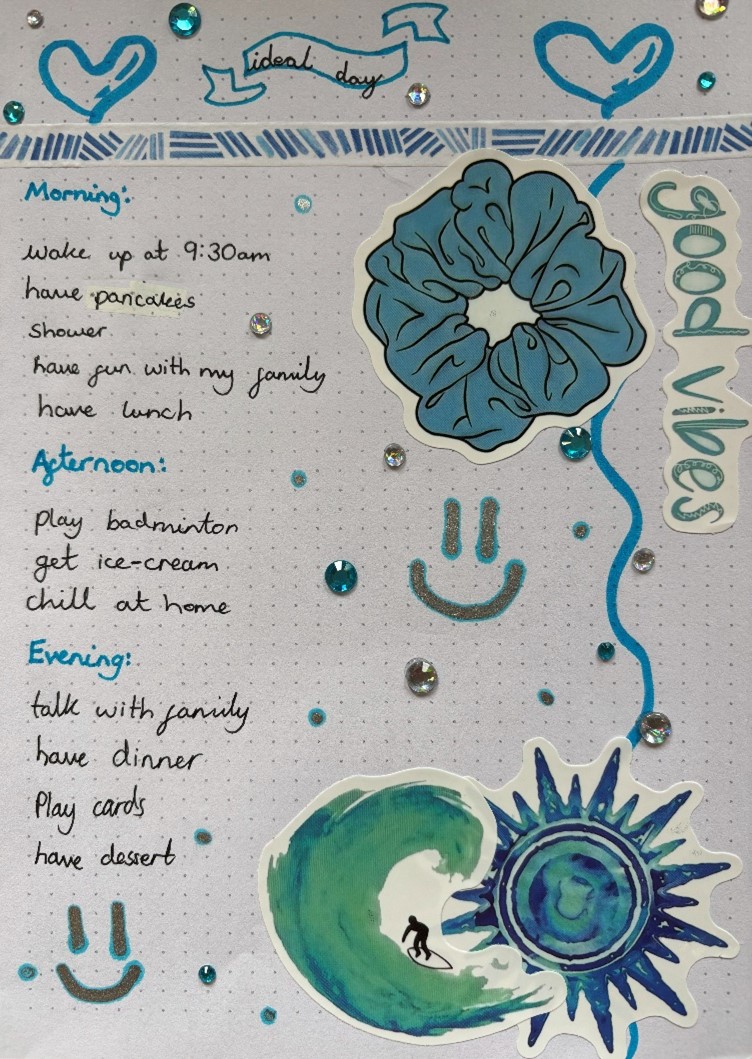 ideal day
good vibes
Morning:
wake up at 9:30am
have pancakes
shower
have fun with my family
have lunch
Afternoon:
play badminton
get ice-cream
chill at home
Evening:
talk with family
have dinner
Play cards
have dessert